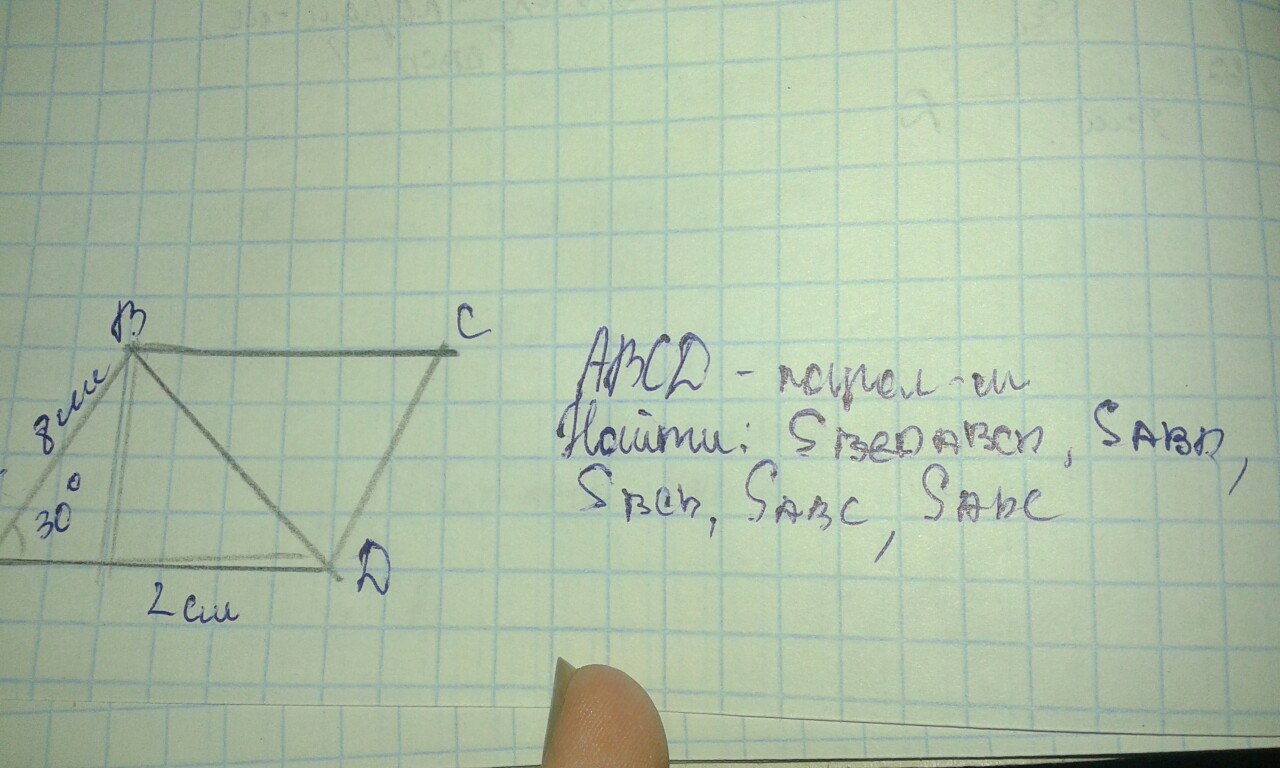 B
C
8 см
30°
D
2 см
ABCD - парал-м
Найти: SABCD, SABD,
SBCD, SABC, SADC